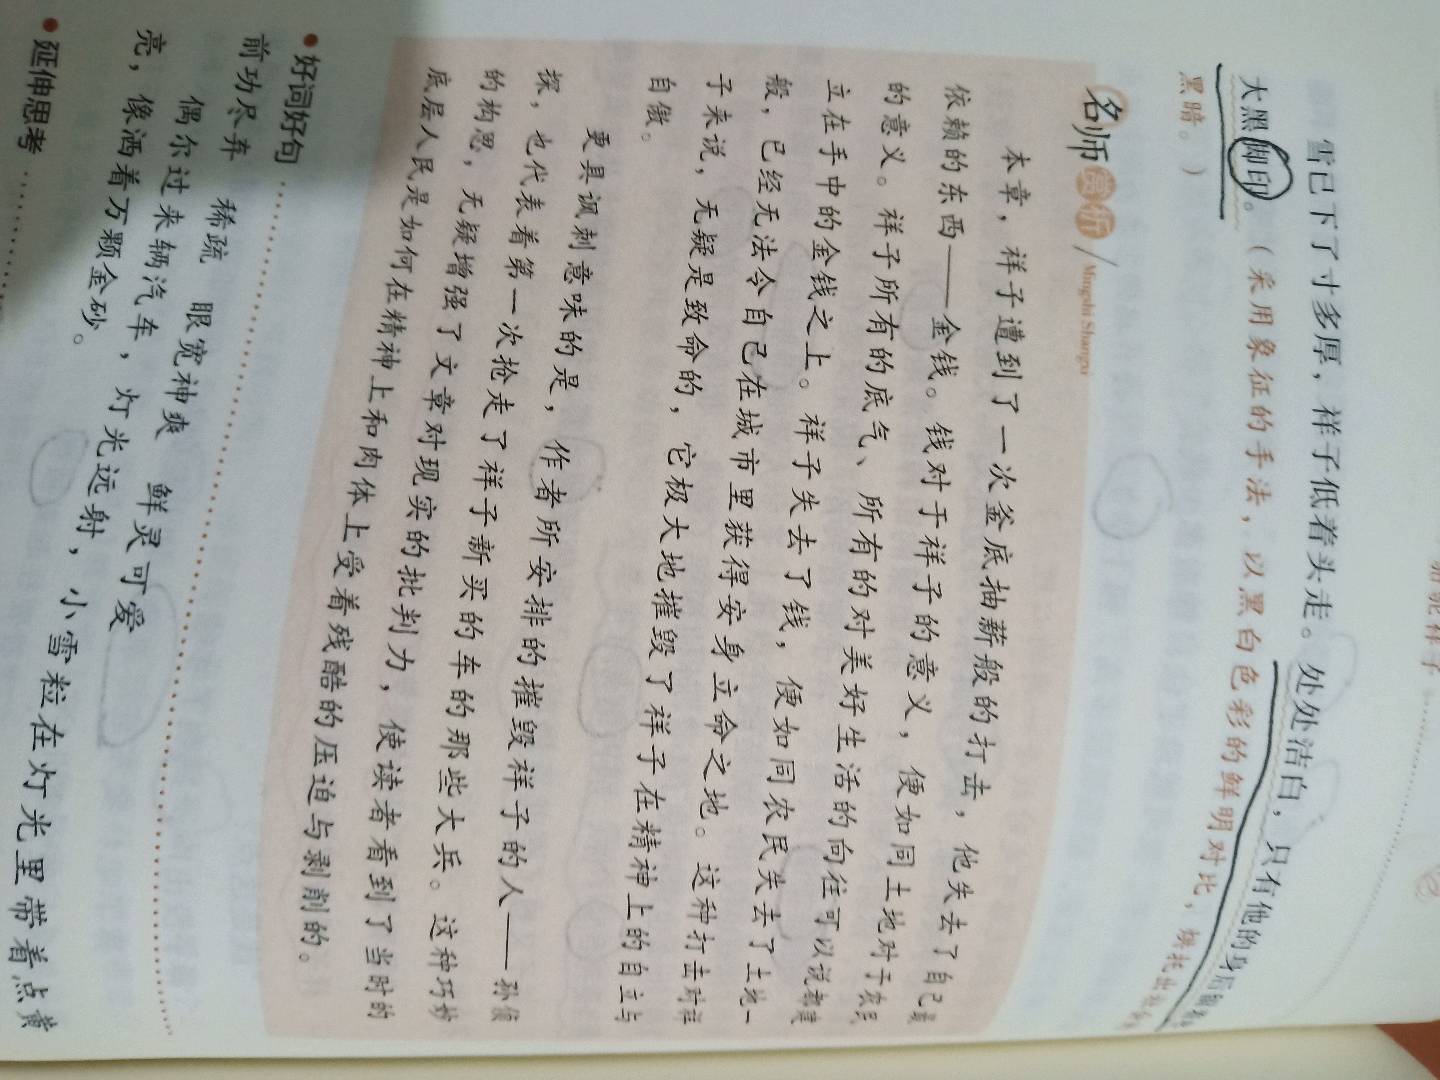 骆驼祥子
雪已下了寸多厚，祥子低着头走。处处洁白，只有他的身后留着
大黑脚印。（采用象征的手法，以黑白色彩的鲜明对比，烘托出社会
黑暗。）
名师赏析 / Mingshi Shangxi
本章，祥子遭到了一次釜底抽薪般的打击，他失去了自己最
依赖的东西——金钱。钱对于祥子的意义，便如同土地对于农民
的意义。祥子所有的底气、所有的对美好生活的向往可以说都建
立在手中的金钱之上。祥子失去了钱，便如同农民失去了土地一
般，已经无法令自己在城市里获得安身立命之地。这种打击对祥
子来说，无疑是致命的，它极大地摧毁了祥子在精神上的自立与
自傲。
更具讽刺意味的是，作者所安排的摧毁祥子的人——孙侦
探，也代表着第一次抢走了祥子新买的车的那些大兵。这种巧妙
的构思，无疑增强了文章对现实的批判力，使读者看到了当时的
底层人民是如何在精神上和肉体上受着残酷的压迫与剥削的。
好词好句
前功尽弃 稀疏 眼宽神爽 鲜灵可爱
偶尔过来辆汽车，灯光远射，小雪粒在灯光里带着点黄
亮，像洒着万颗金砂。
延伸思考